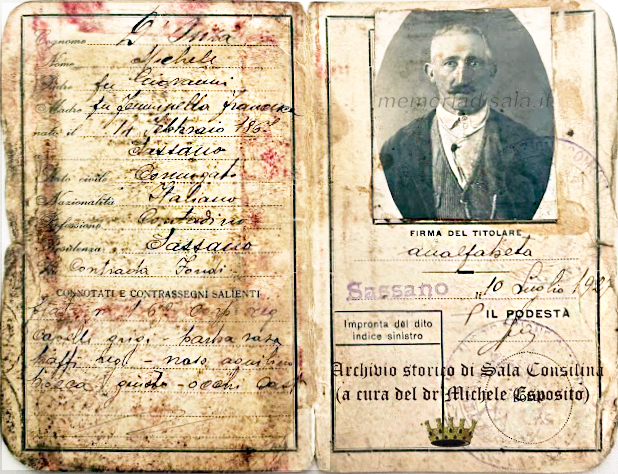 Cognome D'
Nome Michele
Padre fu Giovanni
Madre fu Femminella Francesca
nato il 14 Febbraio 186
a Sassano
Stato civile Coniugato
Nazionalità Italiano
Professione Contadino
Residenza Sassano
Contrada Fondi
CONNOTATI E CONTRASSEGNI SALIENTI
1,62 reg
Capelli grigi - barba rasa
baffi reg - naso aquilino
bocca giusta - occhi cast
memoriadisala.it
FIRMA DEL TITOLARE
analfabeta
Sassano, 10 Luglio 192
IL PODESTÀ
Impronta del dito
indice sinistro
Archivio storico di Sala Consilina
(a cura del dr Michele Esposito)